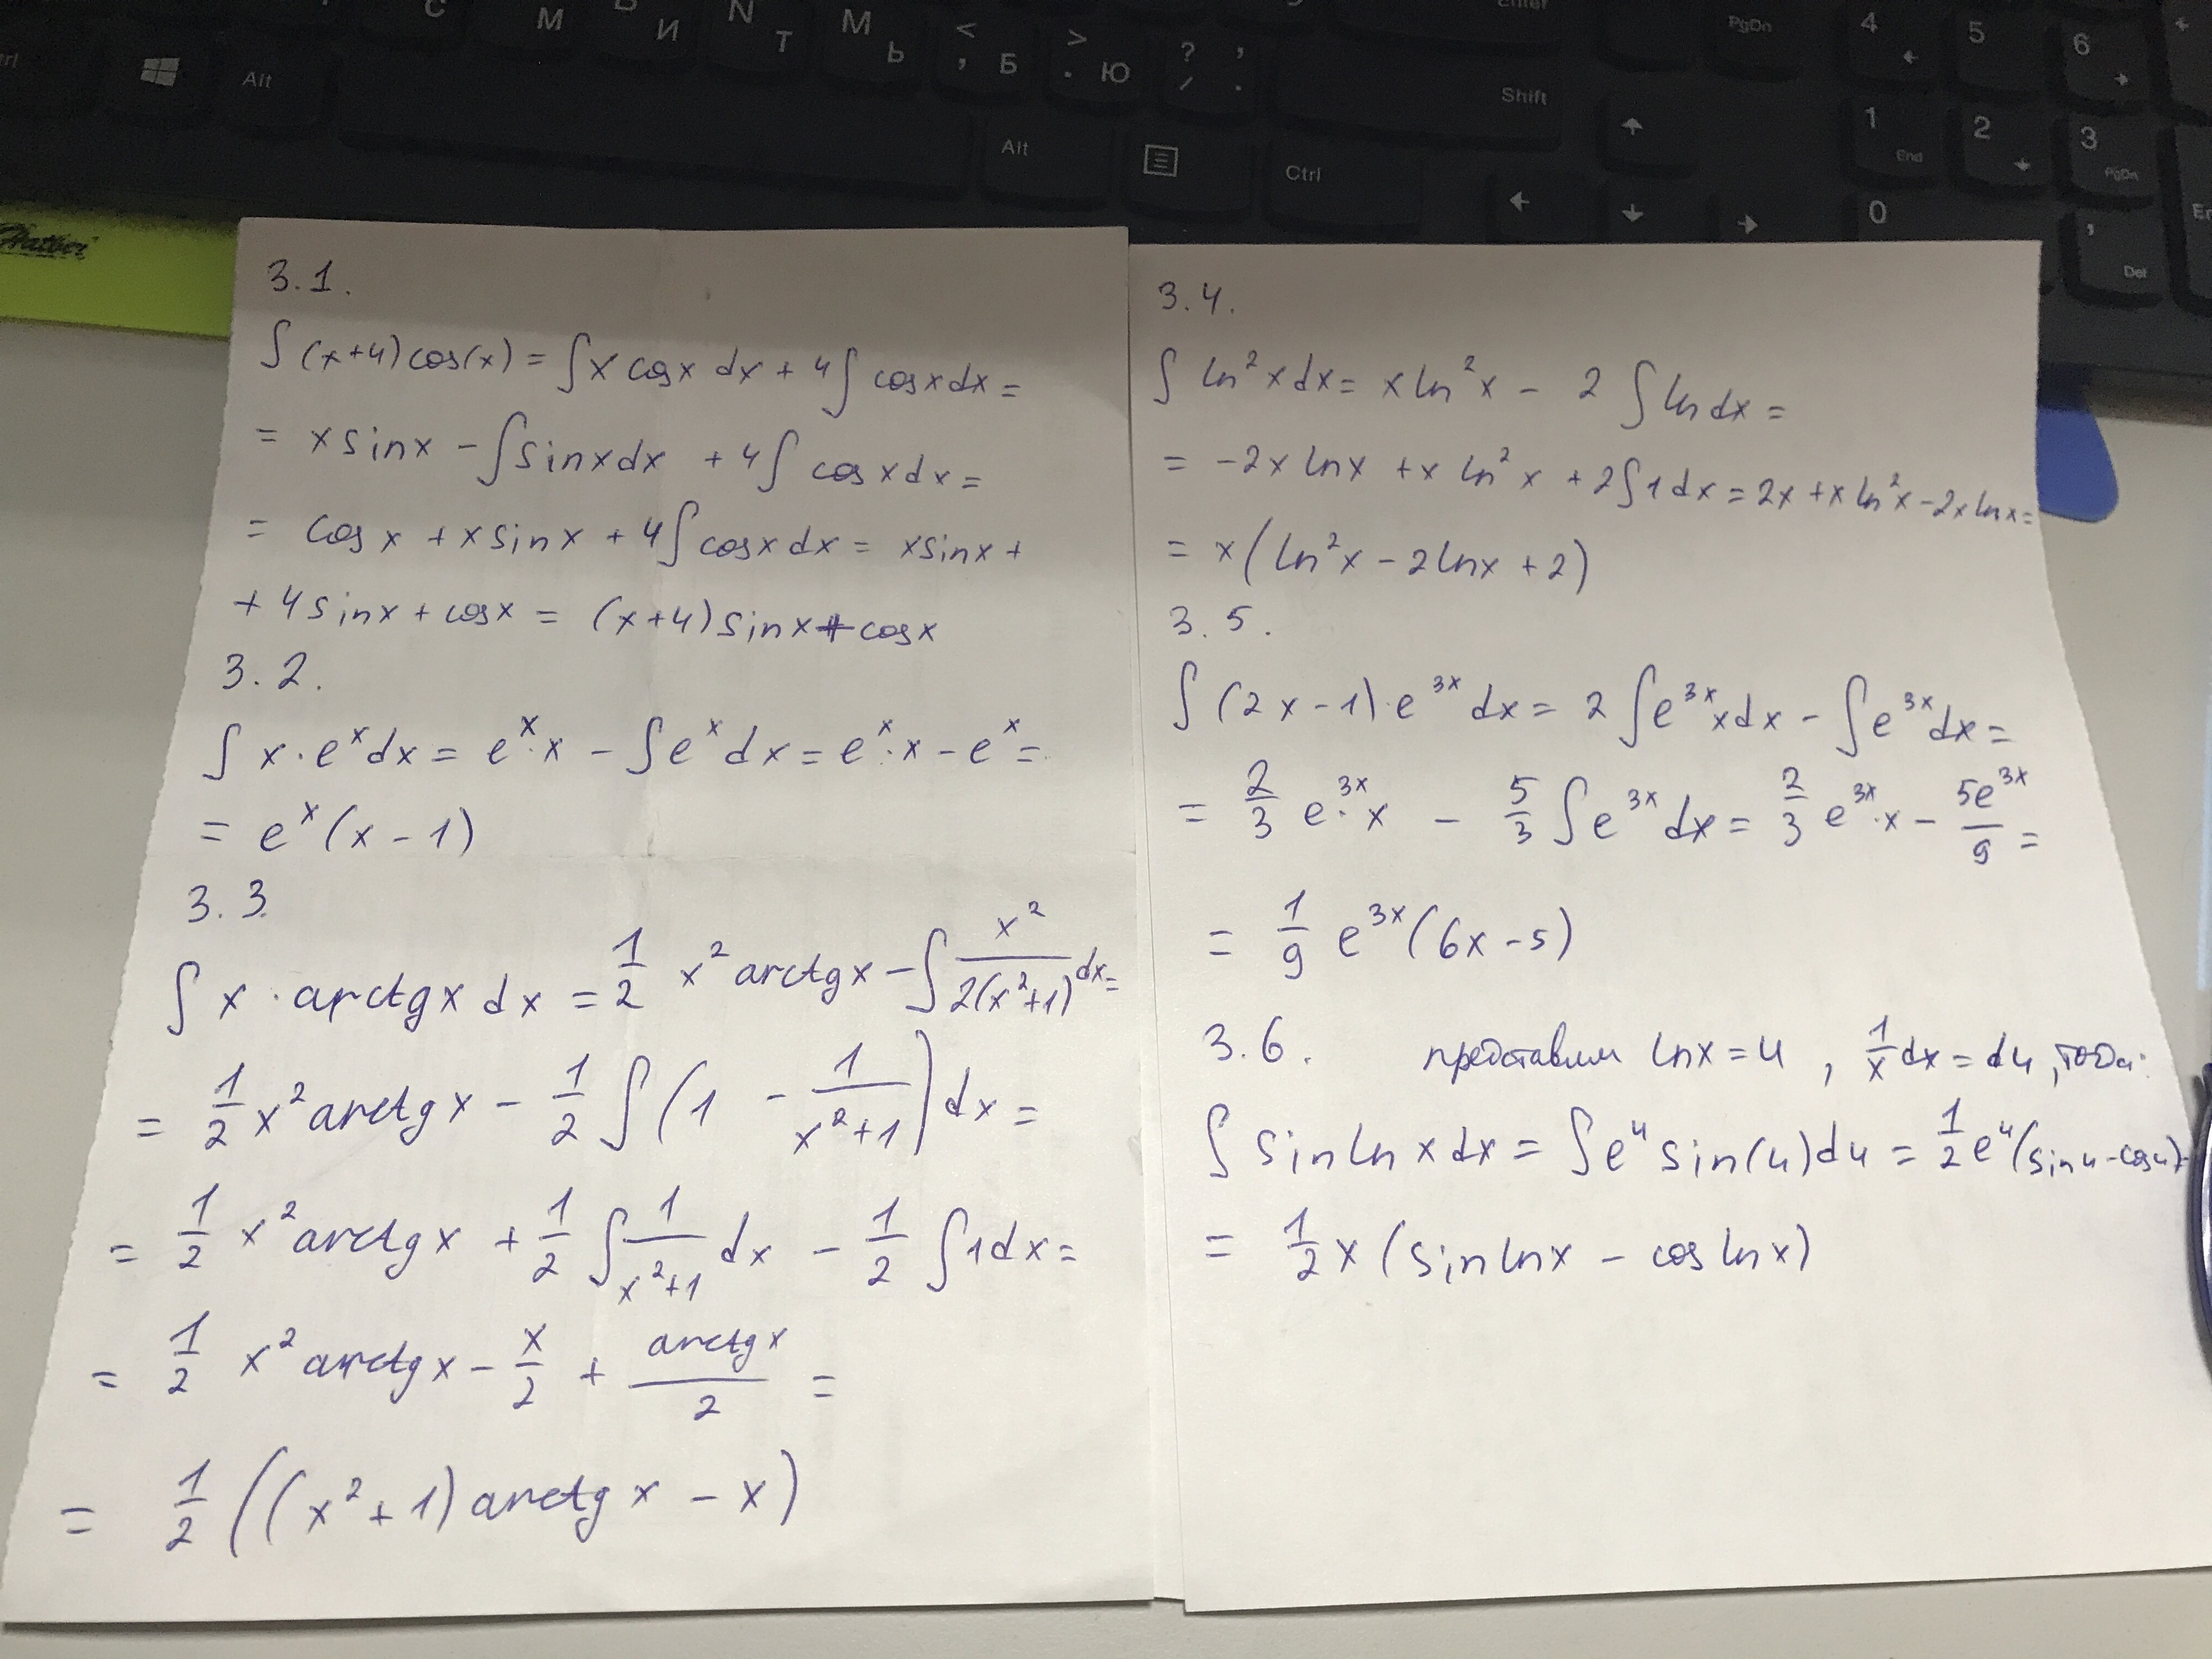 C М И N Т М Ь < , Б > . Ю ? / , . Enter PgDn 4 5 6
Alt Shift 1 End 2 3 PgDn
Alt Ctrl 0 , Del
3.1.
∫(x+4)cos(x) = ∫x cosx dx + 4∫ cosx dx =
= x sinx - ∫sinx dx + 4∫ cosx dx =
= cosx + x sinx + 4∫cosx dx = x sinx +
+ 4sinx + cosx = (x+4) sinx + cosx
3.2.
∫ x·eˣdx = eˣ·x - ∫eˣdx = eˣ·x - eˣ =
= eˣ(x - 1)
3.3.
∫ x · arctgx dx = 1/2 x² arctgx - ∫ x²/2(x²+1) dx =
= 1/2 x² arctgx - 1/2 ∫(1 - 1/(x²+1)) dx =
= 1/2 x² arctgx + 1/2 ∫ 1/(x²+1) dx - 1/2 ∫1dx =
= 1/2 x² arctgx - x/2 + arctgx/2 =
= 1/2 ((x²+1) arctgx - x)
3.4.
∫ ln²x dx = x ln²x - 2 ∫ ln dx =
= -2x lnx + x ln²x + 2∫1dx = 2x + x ln²x - 2x lnx =
= x(ln²x - 2lnx + 2)
3.5.
∫(2x-1)·e³ˣdx = 2∫e³ˣx dx - ∫e³ˣdx =
= 2/3 e³ˣ·x - 5/3 ∫e³ˣdx = 2/3 e³ˣ·x - 5e³ˣ/9 =
= 1/9 e³ˣ(6x-5)
3.6. представим lnx = u, 1/x dx = du, тогда:
∫ sin ln x dx = ∫eᵘ sin(u)du = 1/2 eᵘ(sin u - cos u) =
= 1/2 x (sin lnx - cos lnx)